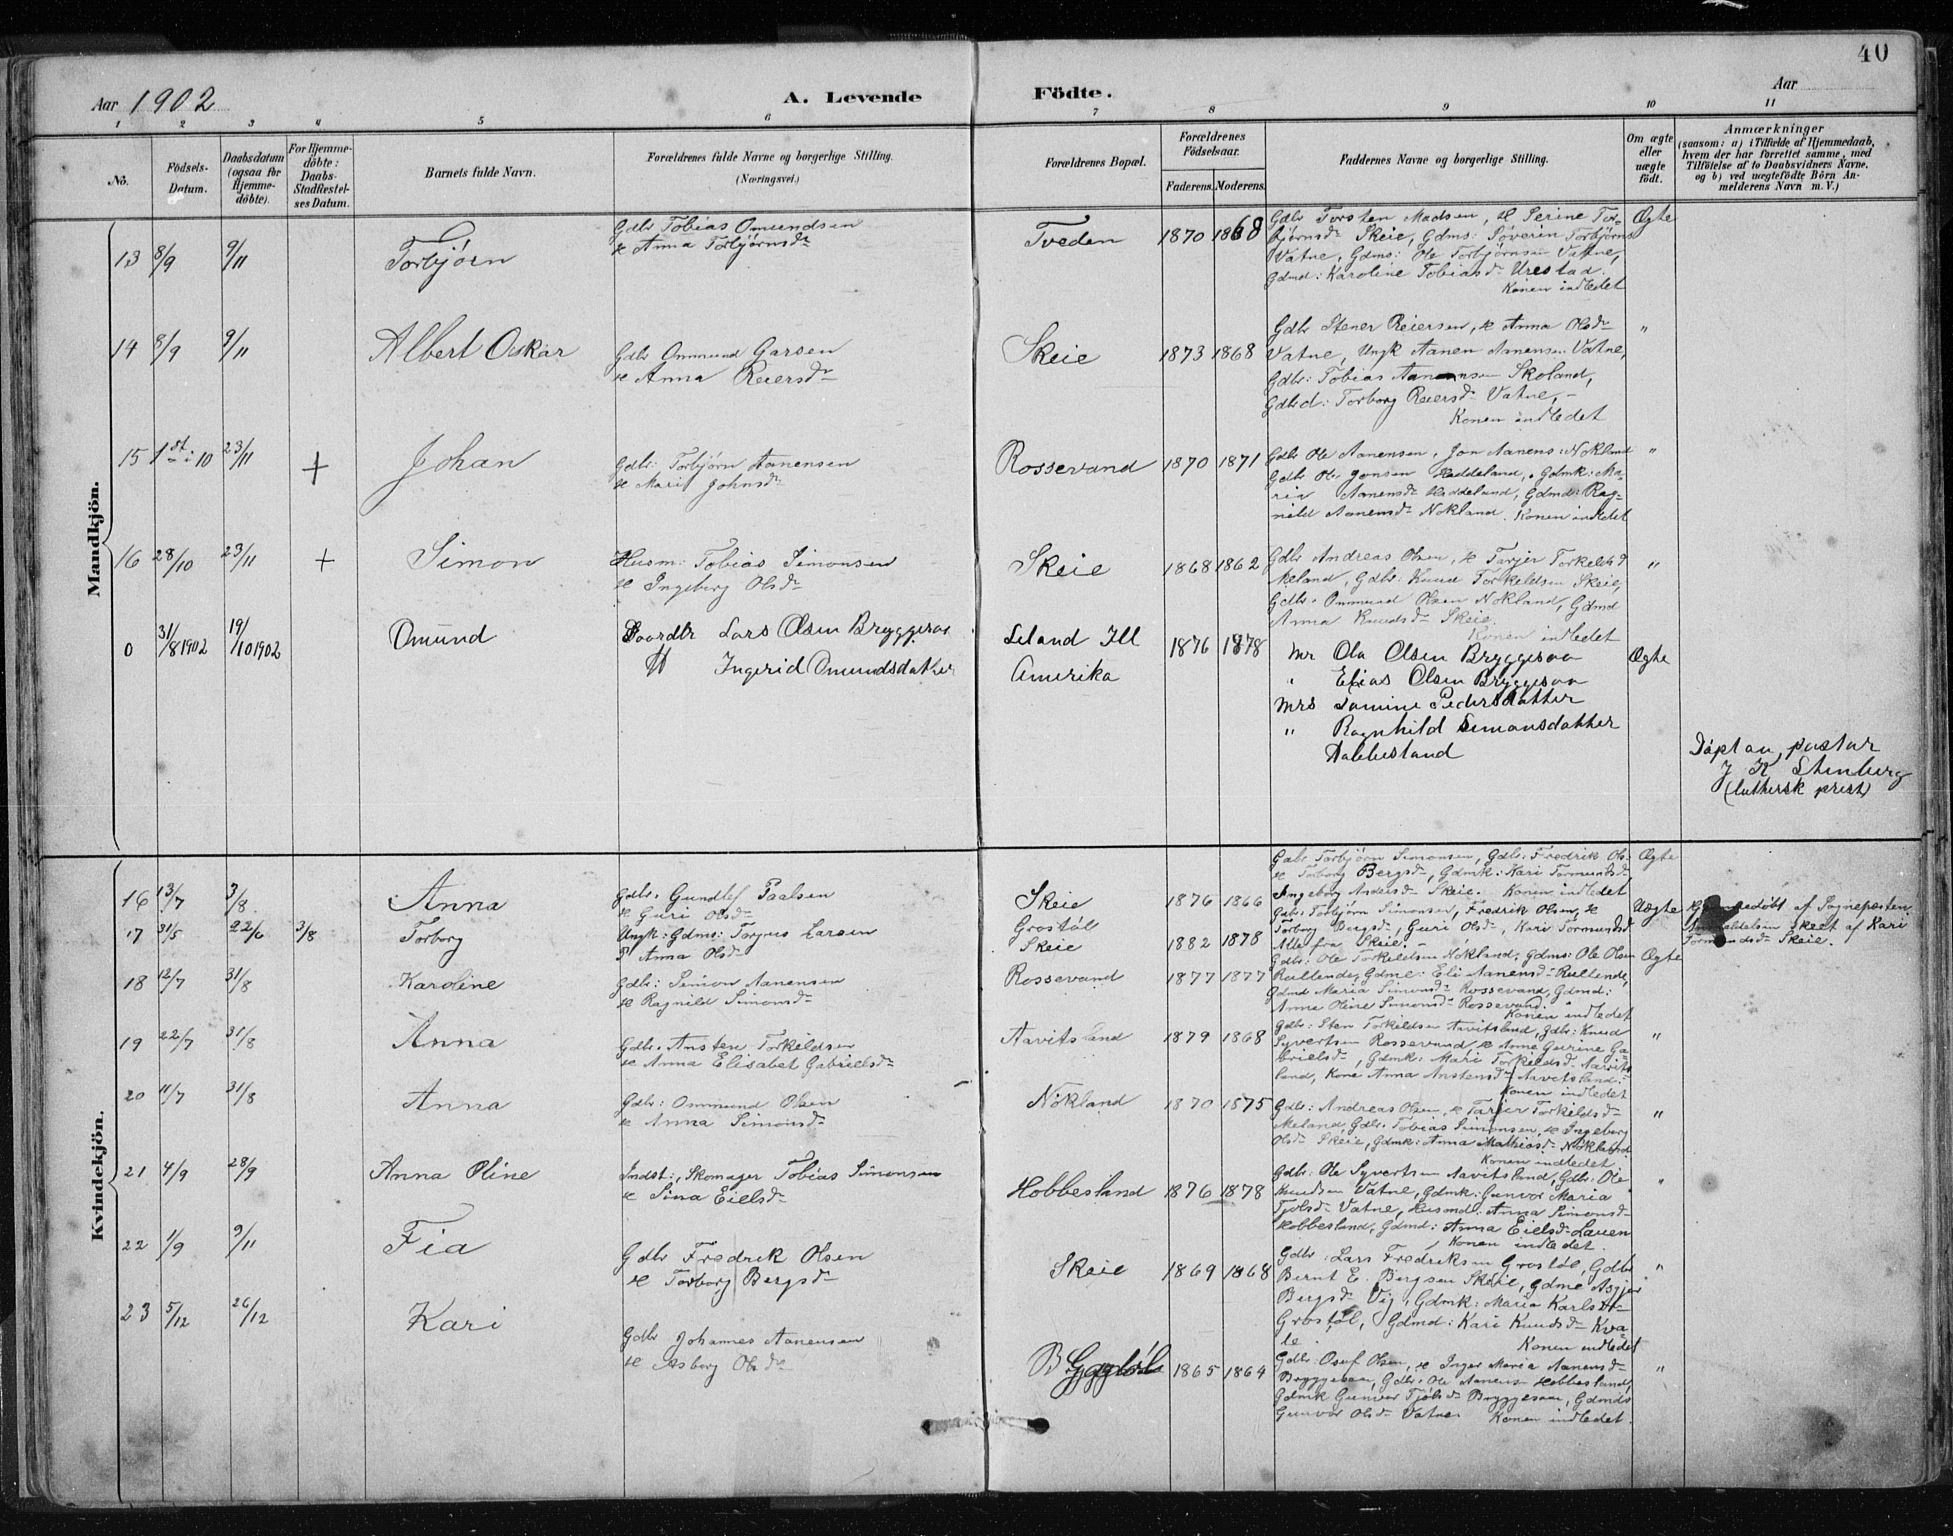 40
Aar 1902 A. Levende Födte. Aar
1 2 3 4 5 6 7 8 9 10 11
No.
Födsels-Datum.
Daabsdatum (ogsaa for Hjemme-döbte).
For Hjemme-döbte: Daabs-Stadfæstel-ses Datum.
Barnets fulde Navn.
Forældrenes fulde Navne og borgerlige Stilling.
(Næringsvei.)
Forældrenes Bopæl.
Forældrenes Födselsaar.
Faderens. Moderens.
Faddernes Navne og borgerlige Stilling.
Om ægte eller uægte födt.
Anmærkninger
(saasom: a) i Tilfælde af Hjemmedaab,
hvem der har forrettet samme, med
Tilföielse af to Daabsvidners Navne,
og b) ved uægtefödte Börn An-
melderens Navn m. V.)
Mandkjön.
13 8/9 9/11 Torbjörn
Gdbr Tobias Omundsen
& Anna Torbjörnsdr
Tveden 1870 1868
Gdbr Torsten Madsen, & Serine Tor-
björnsdr Skeie, Gdms: Söverin Torbjörns
Vatne, Gdms: Ole Torbjörnsen Vatne,
Gdmd: Karoline Tobiasdr Urestad.
Konen indledet
Ægte
14 8/9 9/11 Albert Oskar
Gdbr Ommund Garsen
& Anna Reiersdr
Skeie 1873 1868
Gdbr Stener Reiersen, & Anna Olsdr
Vatne, Ungk Aanen Aanensen Vatne,
Gdbr: Tobias Aanensen Skoland,
Gdbrd: Torborg Reiersdr Vatne, -
Konen indledet
"
15 1st 10 23/11 + Johan
Gdbr: Torbjörn Aanensen
& Mari Johnsdr
Rossevand 1870 1871
Gdbr Ole Aanensen, Jon Aanens: Nökland
Gdbr Ole Jonsen Haddeland, Gdmk: Ma-
ria Aanensdr Haddeland, Gdmd: Rag-
nild Aanensdr Nökland. Konen indledet
"
16 28/10 23/11 + Simon
Husm: Tobias Simonsen
& Ingeborg Olsdr
Skeie 1868 1862
Gdbr Andreas Olsen, & Tarjer Torkelsd
Meland, Gdbr: Knud Torkeldsen Skeie,
Gdbr. Ommund Olsen Nökland, Gdmd
Anna Knudsdr Skeie.
Konen indledet
"
0 31/8 1902 19/10 1902 Omund
Gaardbr Lars Olsen Bryggesaa
H Ingerid Omundsdatter
Leland Ill
Amerika
1876 1878
Mr Ola Olsen Bryggesaa
" Elias Olsen Bryggesaa
Mrs Tomine Pedersdatter
" Ragnhild Simonsdatter
Habbesland
Ægte
Döpt av pastor
J K Stenberg
(luthersk prest)
Kvindekjön.
16 13/7 3/8 Anna
Gdbr. Gundlef Paalsen
& Guri Olsdr
Skeie 1876 1866
Gdbr Torbjörn Simonsen, Gdbr: Fredrik Ols:
& Torborg Bergsdr, Gdmk: Kari Tormundsdr
Ingeborg Andersdr Skeie. Konen indledet
Ægte
17 31/5 22/6 3/8 Torborg
Ungk: Gdms: Targus Larsen
P Anna Olsdr
Grostöl
Skeie
1882 1878
Gdbr: Torbjörn Simonsen, Fredrik Olsen, &
Torborg Bergsdr, Guri Olsdr, Kari Tormundsd
Alle fra Skeie. -
Uægte
Hjemmedöbt af Sogneprsten
Anmeldelsen skeet af Kari
Tormundsdr Skeie.
18 12/7 31/8 Karoline
Gdbr: Simon Aanensen
& Ragnild Simonsdr
Rossevand 1877 1877
Gdbr: Ole Torkeldsen Nökland, Gdms: Ole Olsen
Rullende, Gdme: Eli Aanensdr Rullende,
Gdmd Maria Simonsdr Rossevand, Gdmd:
Anna Oline Simonsdr Rossevand.
Konen indledet
Ægte
19 22/7 31/8 Anna
Gdbr. Ansten Torkeldsen
& Anna Elisabet Gabrielsdr
Aavitsland 1879 1868
Gdbr: Sten Torkeldsen Aavitsland, Gdbr: Knud
Syvertsen Rossevand, & Anne Gurine Ga-
brielsdr, Gdmk: Mari Torkeldsdr Aavits
land, Kone Anna Anstensdr Aavitsland:
Konen indledet
"
20 11/7 31/8 Anna
Gdbr: Ommund Olsen
& Anna Simonsdr
Nökland 1870 1875
Gdbr: Andreas Olsen, & Tarjer Torkeldsdr
Meland, Gdbr. Tobias Simonsen, & Ingeborg
Olsdr Skeie, Gdmk: Anna Mathiasdr Nökland
Konen indledet
"
21 4/9 28/9 Anna Oline
Indst:, Skomager Tobias Simonsen
& Sina Eielsdr
Hobbesland 1876 1878
Gdbr: Ole Syvertsen Aavitsland, Gdbr: Ole
Knudsen Vatne, Gdmk: Gunvor Maria
Tjölsdr Vatne, Husmd: Anna Simonsdr
Hobbesland, Gdmd: Anna Eielsdr Lauen
Konen indledet.
"
22 1/9 9/11 Fia
Gdbr Fredrik Olsen
& Torborg Bergsdr
Skeie 1869 1868
Gdbr: Lars Fredriksen Grostöl, Gdbr
Bernt E. Bergsen Skeie, Gdme Asgjer
Bergsdr Vig, Gdmk: Maria Karlsdr
Grostöl, Gdmd: Kari Knudsdr Kva-
le Konen indledet
"
23 5/12 26/12 Kari
Gdbr Johannes Aanensen
& Asborg Olsdr
1865 1864
Gdbr Osuf Olsen, & Inger Maria Aanensdr
Bryggesaa, Gdbr: Ole Aanens Hobbesland,
Gdmk Gunvor Tjölsdr Bryggesaa, Gdmd
Gunvor Olsdr Vatne Konen indledet.
"